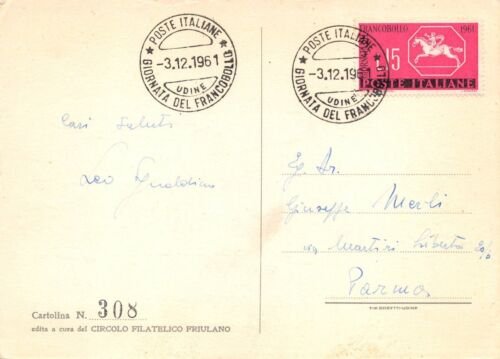 ★ POSTE ITALIANE ★
-3.12.1961
UDINE
GIORNATA DEL FRANCOBOLLO
★ POSTE ITALIANE ★
-3.12.1961
UDINE
GIORNATA DEL FRANCOBOLLO
FRANCOBOLLO 1961
15
POSTE ITALIANE
Cari saluti
Leo
Eg. Sr.
Giuseppe Merli
via Martiri Libertà
Parma
Cartolina N. 308
edita a cura del CIRCOLO FILATELICO FRIULANO